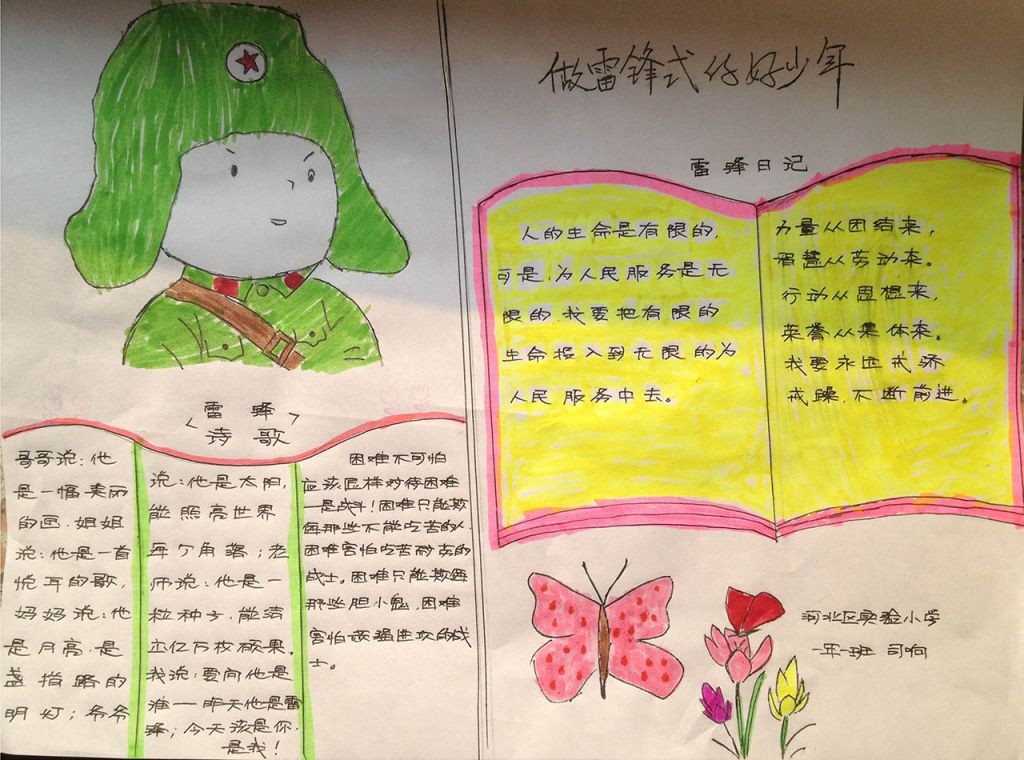 做雷锋式的好少年
雷锋日记
人的生命是有限的,
可是,为人民服务是无
限的,我要把有限的
生命投入到无限的为
人民服务中去。
力量从团结来,
智慧从劳动来。
行动从思想来,
荣誉从集体来。
我要永远戒骄
戒躁,不断前进。
<雷锋>
诗歌
哥哥说:他
是一幅美丽
的画,姐姐
说:他是一首
悦耳的歌,
妈妈说:他
是月亮,是
盏指路的
明灯;爷爷
说:他是太阳,
能照亮世界
每个角落;老
师说:他是一
粒种子,能结
出亿万枚硕果。
我说:要问他是
谁——昨天他是雷
锋;今天该是你,
是我!
困难不可怕
应该怎样对待困难
—是战斗!困难只能欺
侮那些不能吃苦的人,
困难害怕吃苦耐劳的
战士。困难只能欺侮
那些胆小鬼,困难
害怕顽强进攻的战
士。
河北区实验小学
一年一班